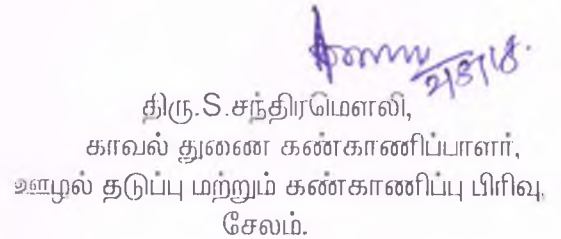 2/8/18.
திரு.S.சந்திரமெளலி,
காவல் துணை கண்காணிப்பாளர்,
ஊழல் தடுப்பு மற்றும் கண்காணிப்பு பிரிவு,
சேலம்.